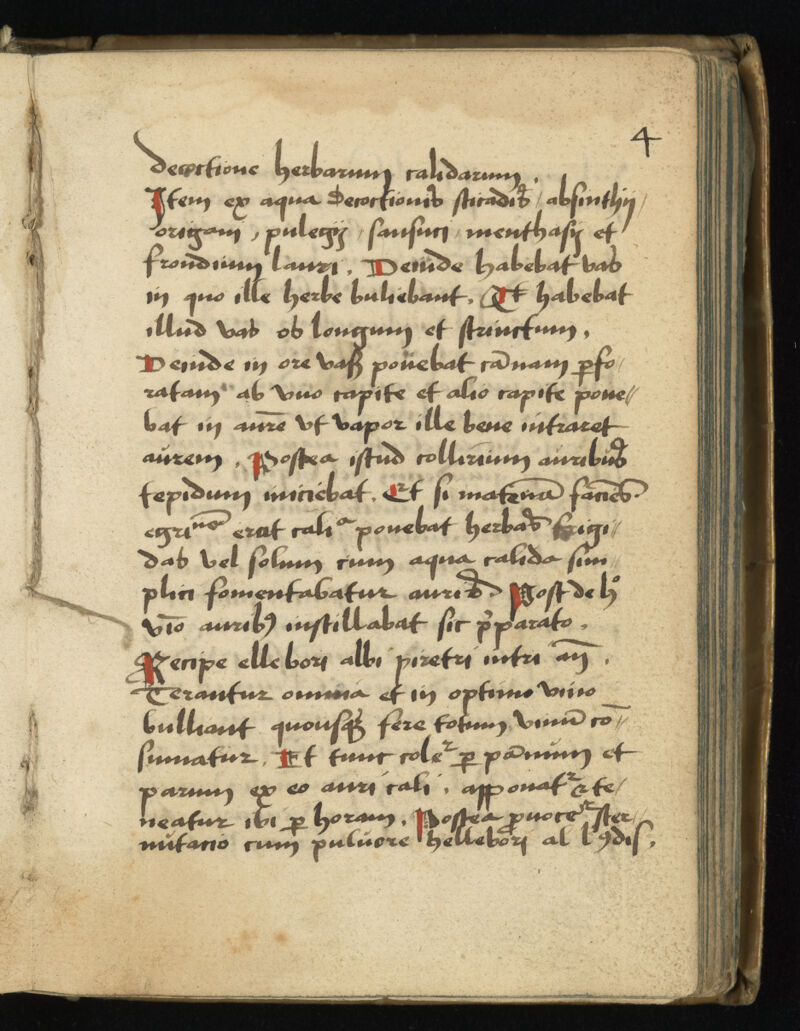 4
decoctione herbarum calidarum.
Item ex aqua Decoctionis sticadis / absinthij /
origani, pulegij / sansuci / menthasꝫ et
frondium lauri. Deinde habebat vas
in quo ille herbe buliebant. Et habebat
illud vas os longum et strinctum.
Deinde in ore vasꝭ ponebat cānam ꝑfo/
ratam ab vno capite et alio capite pone//
bat in aurē vt vapor ille bene intraret
aurem. Postea istud collirium auribus
tepidum iniciebat. Et si materiā faciēs
egriᵗⁿᵉ̄ erat caliᵃ ponebat herbas frigi/
das vel solum cum aqua calida sim//
plici fomentabatur auris. Post de hͦ
vīo auribꝫ instillabat sic p̄parato.
Recipe ellebori albi piretri nitri an̄.
Terantur omnia et in optimo vino
bulliant quousqꝫ fere totum vinū cō//
sumatur. Et tunc coleʳ ꝑ pānum et
parum ex eo auri cali. apponatʳ & te/
neatur ibi ꝑ horam. Postea ꝓuoceʳ ster//
nutacio cum puluore hellebori al l ꝯdisi.